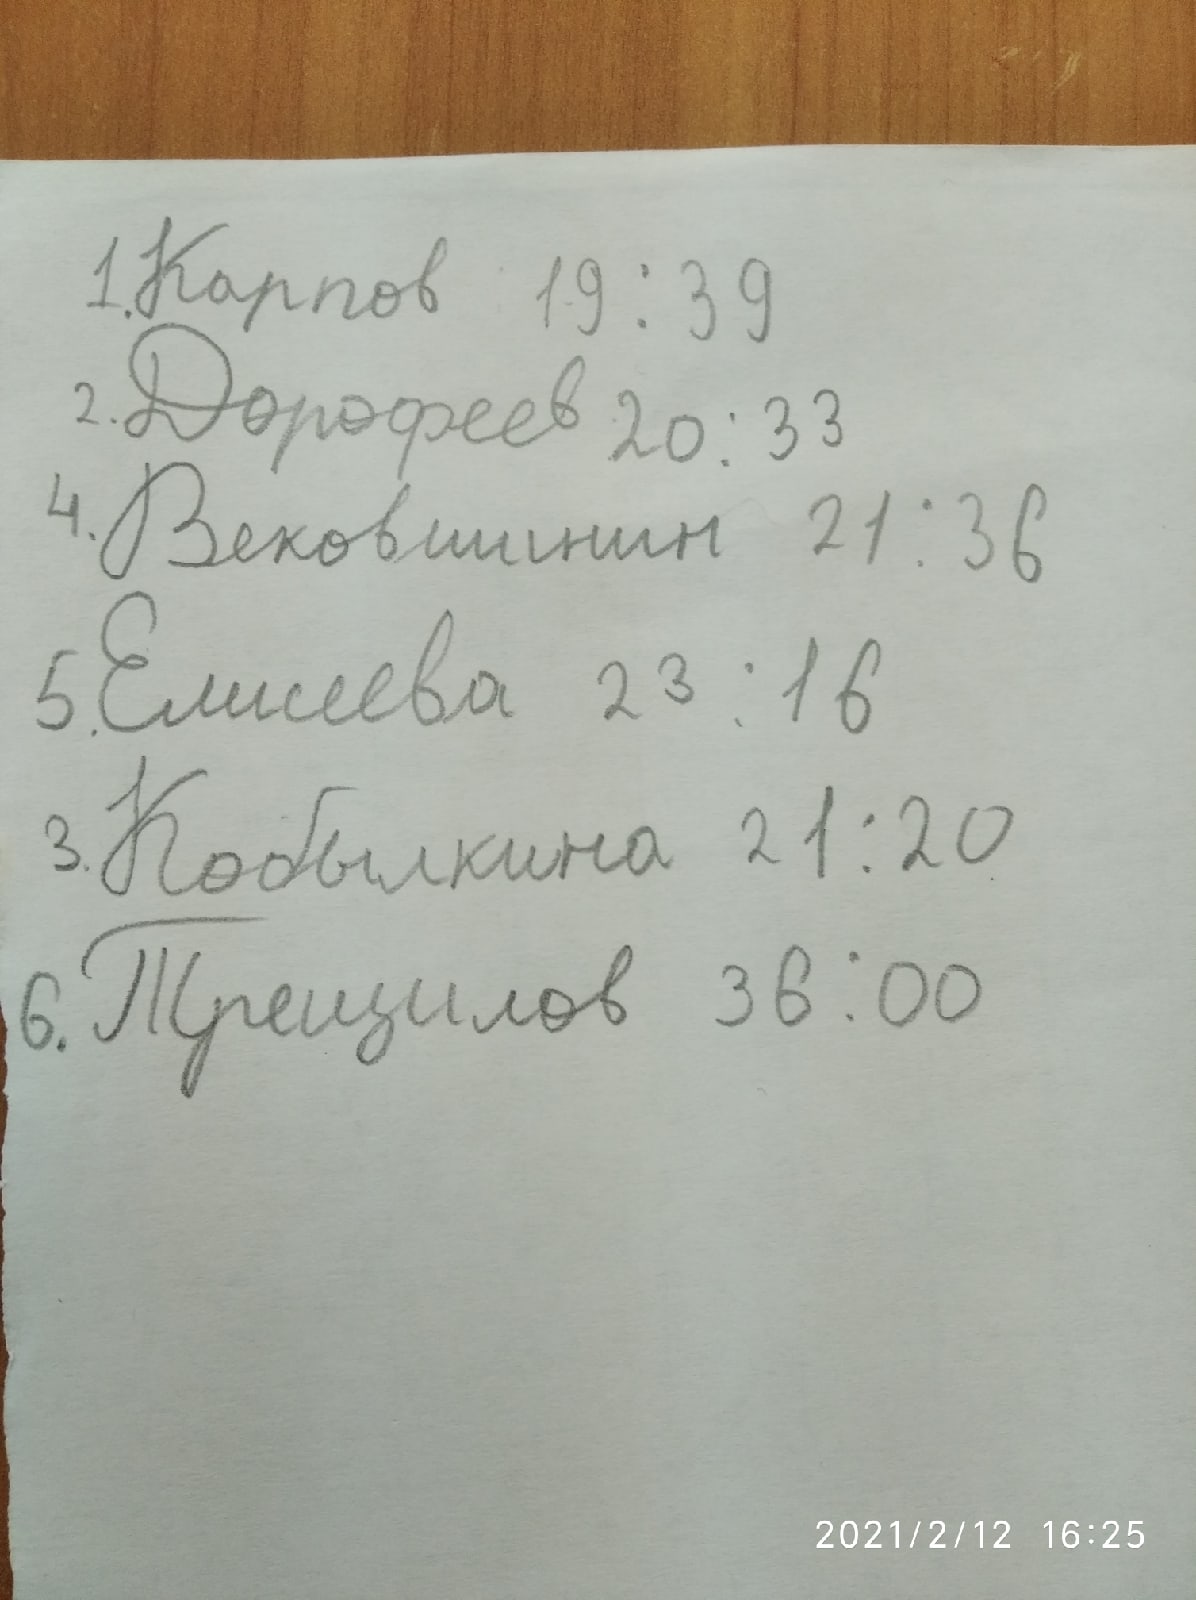 1. Карпов 19:39
2. Дорофеев 20:33
4. Вековшинин 21:36
5. Елисеева 23:16
3. Кобылкина 21:20
6. Трещилов 36:00
2021/2/12 16:25